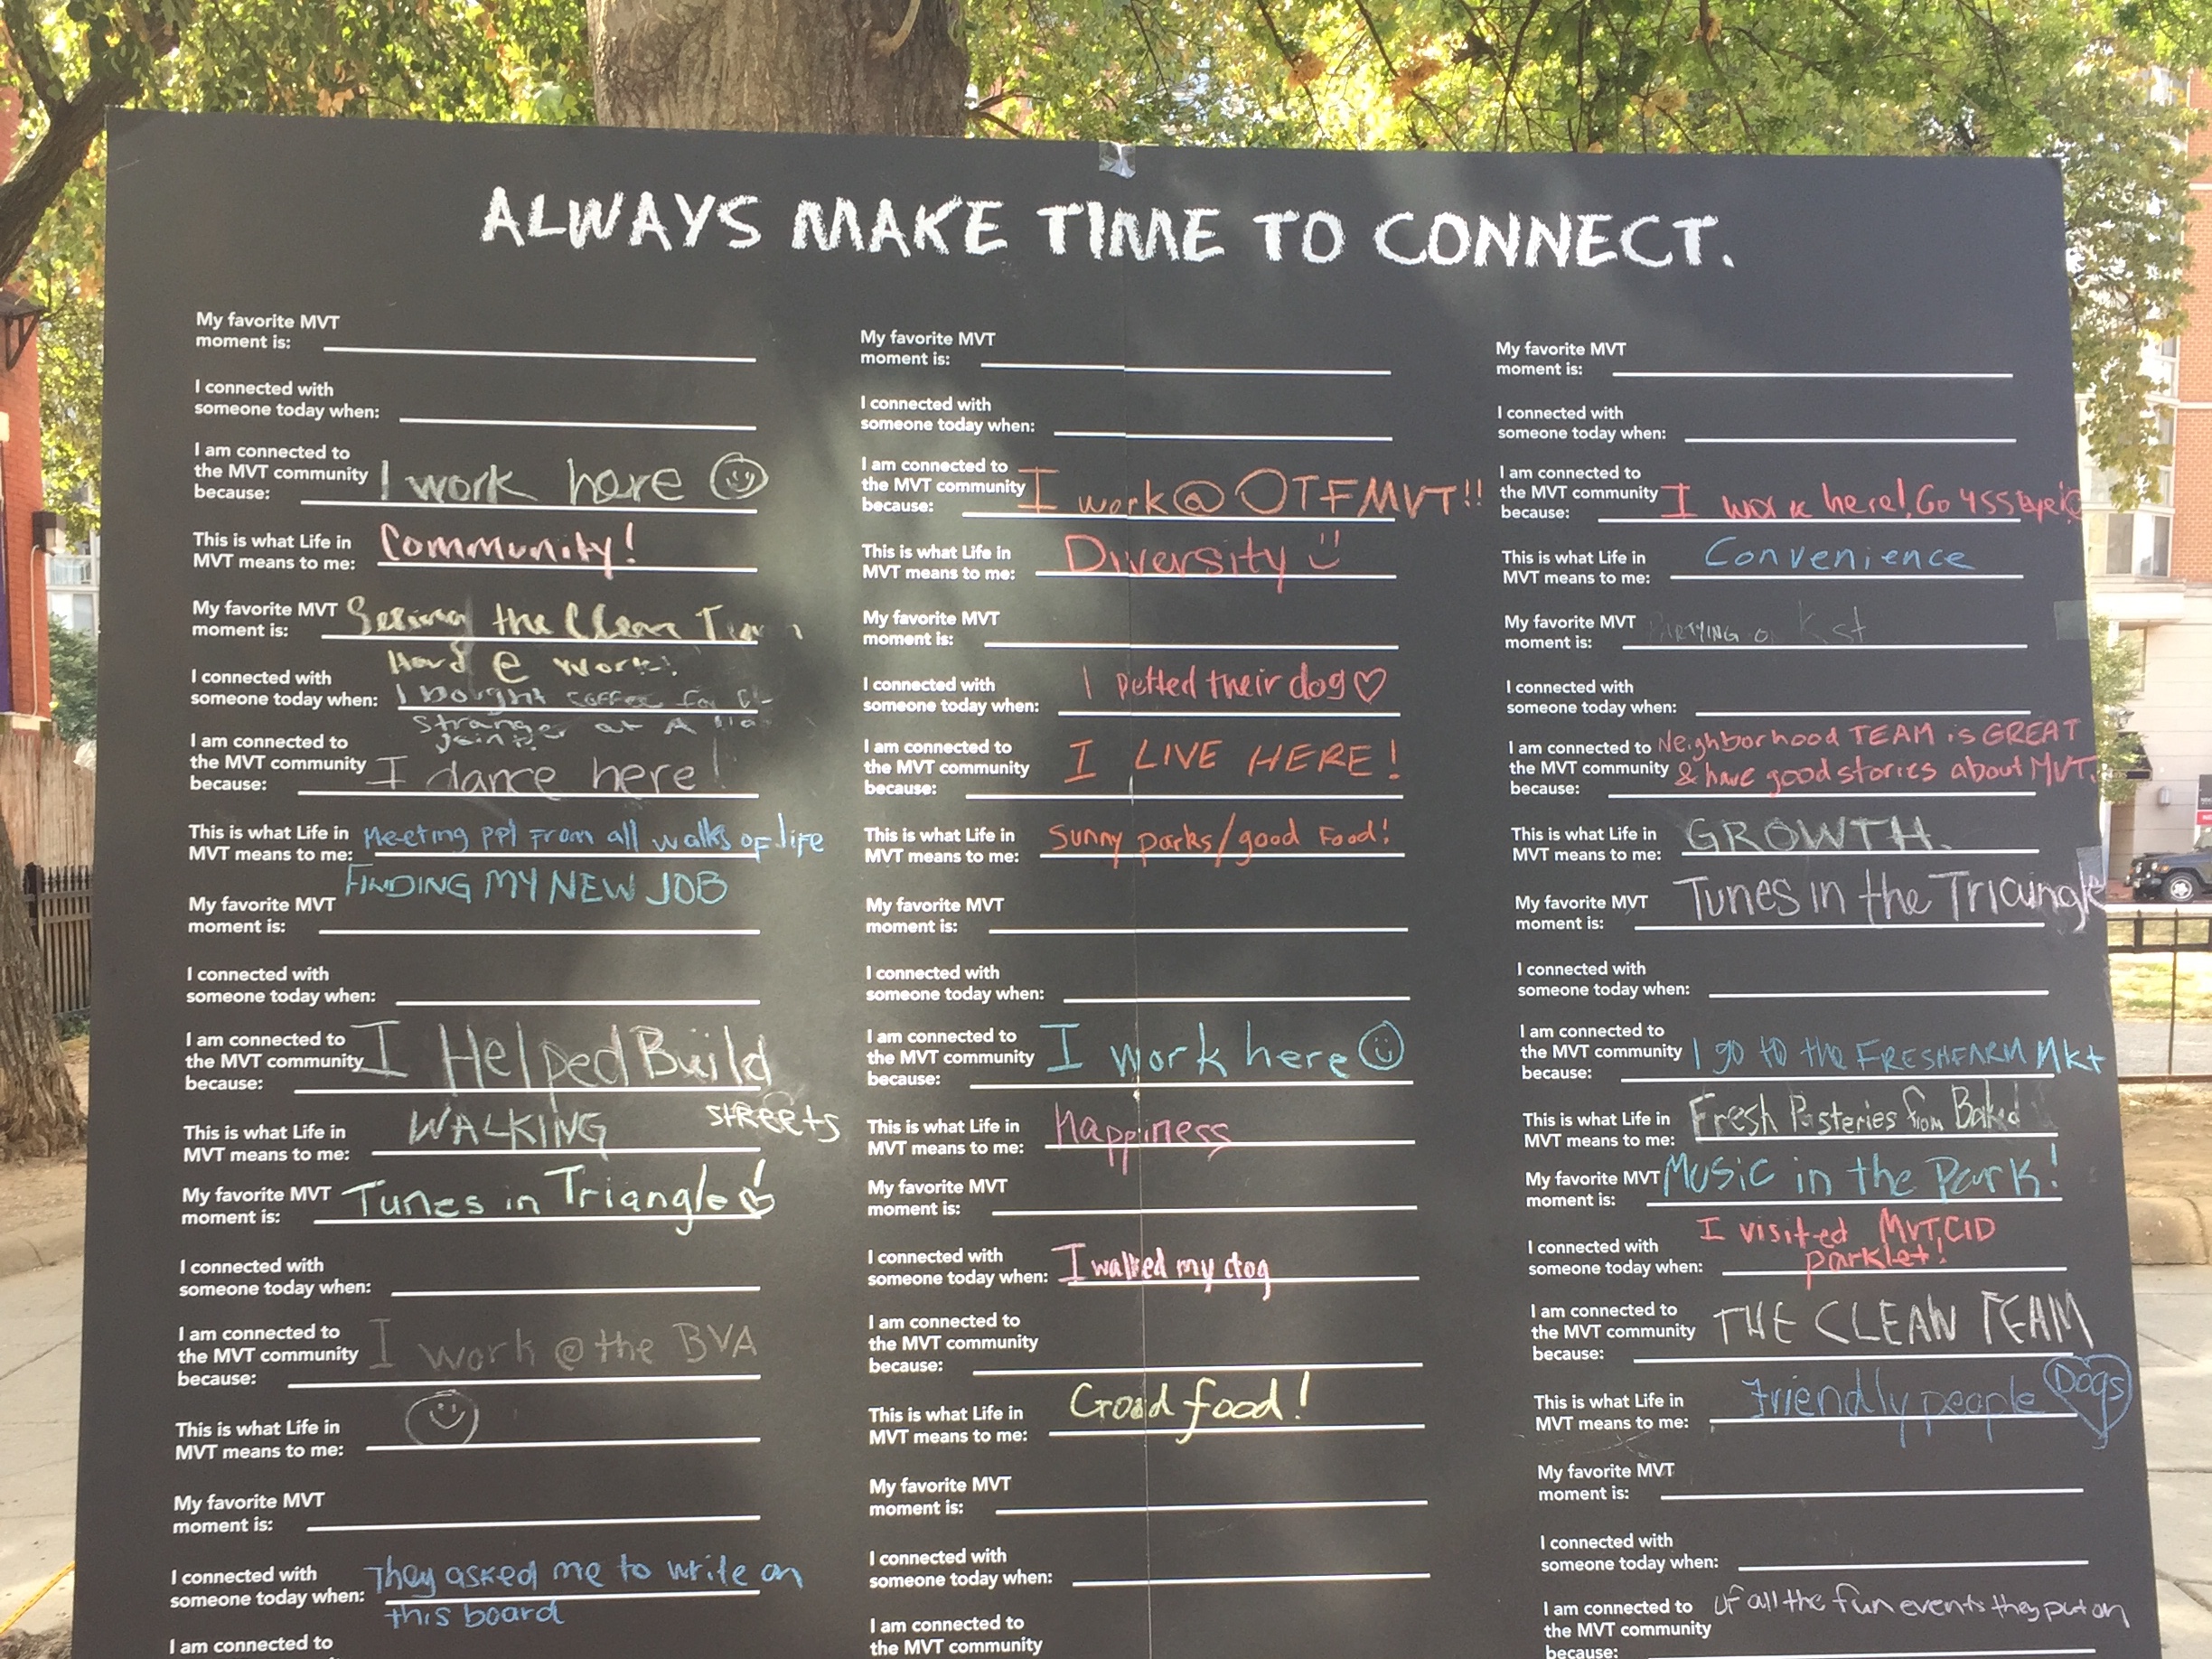 ALWAYS MAKE TIME TO CONNECT.
My favorite MVT
moment is:
I connected with
someone today when:
I am connected to
the MVT community
because: I work here
This is what Life in
MVT means to me: Community!
My favorite MVT
moment is: Seeing the Clean Team
Hard @ work!
I connected with
someone today when: I bought coffee for a
stranger at A
I am connected to
the MVT community
because: I dance here!
This is what Life in
MVT means to me: Meeting ppl from all walks of life
FINDING MY NEW JOB
My favorite MVT
moment is:
I connected with
someone today when:
I am connected to
the MVT community
because: I Helped Build
STREETS
This is what Life in
MVT means to me: WALKING
My favorite MVT
moment is: Tunes in Triangle!
I connected with
someone today when:
I am connected to
the MVT community
because: I work @ the BVA
This is what Life in
MVT means to me:
My favorite MVT
moment is:
I connected with
someone today when: They asked me to write on
this board
I am connected to
My favorite MVT
moment is:
I connected with
someone today when:
I am connected to
the MVT community
because: I work @ OTFMVT!!
This is what Life in
MVT means to me: Diversity
My favorite MVT
moment is:
I connected with
someone today when: I petted their dog ♡
I am connected to
the MVT community
because: I LIVE HERE!
This is what Life in
MVT means to me: Sunny parks/good Food!
My favorite MVT
moment is:
I connected with
someone today when:
I am connected to
the MVT community
because: I work here
This is what Life in
MVT means to me: Happiness
My favorite MVT
moment is:
I connected with
someone today when: I walked my dog
I am connected to
the MVT community
because:
This is what Life in
MVT means to me: Good food!
My favorite MVT
moment is:
I connected with
someone today when:
I am connected to
the MVT community
My favorite MVT
moment is:
I connected with
someone today when:
I am connected to
the MVT community
because: I work here! Go
This is what Life in
MVT means to me: Convenience
My favorite MVT
moment is: PARTYING on K st
I connected with
someone today when:
I am connected to Neighborhood TEAM is GREAT
the MVT community & have good stories about MVT.
because:
This is what Life in
MVT means to me: GROWTH.
My favorite MVT
moment is: Tunes in the Triangle
I connected with
someone today when:
I am connected to
the MVT community
because: I go to the FRESHFARM Mkt
This is what Life in
MVT means to me: Fresh Pasteries from Baked
My favorite MVT
moment is: Music in the Park!
I visited MVT CID
I connected with
someone today when: parklet!
I am connected to
the MVT community
because: THE CLEAN TEAM
This is what Life in
MVT means to me: Friendly people Dogs
My favorite MVT
moment is:
I connected with
someone today when:
I am connected to of all the fun events they put on
the MVT community
because: